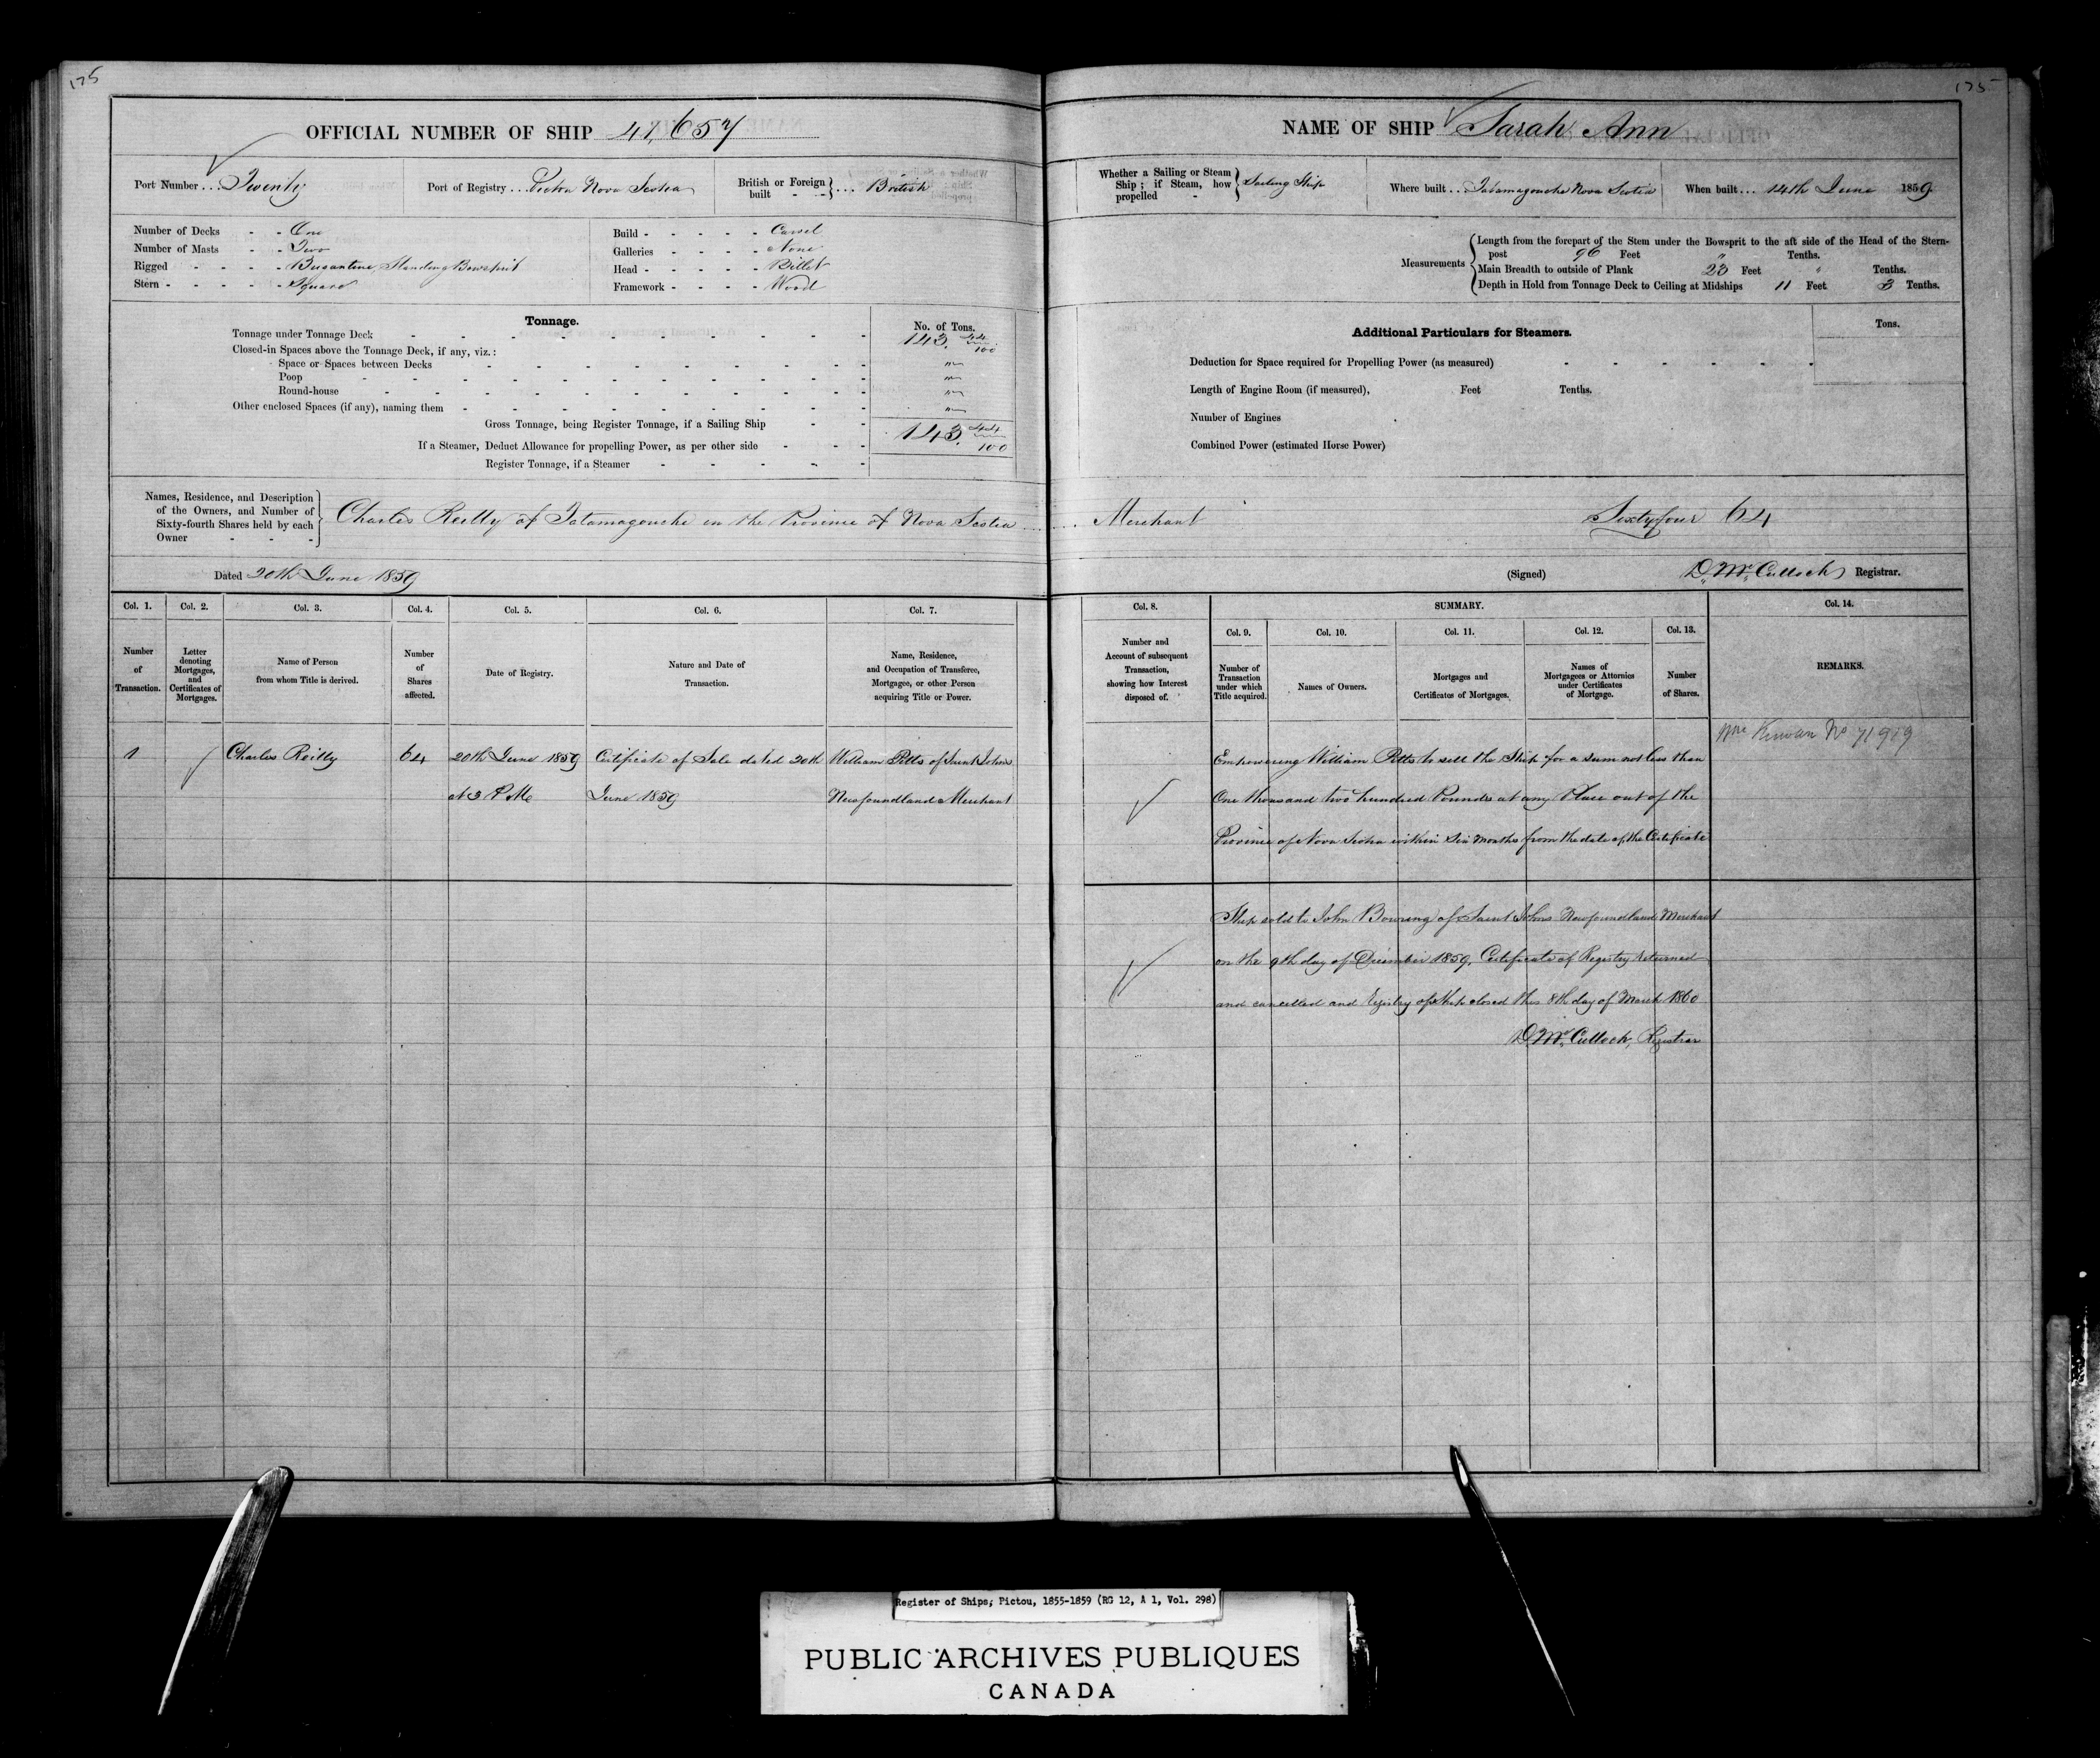 175
OFFICIAL NUMBER OF SHIP 41,657
Port Number ... Twenty
Port of Registry ... Pictou Nova Scotia
British or Foreign built - - } ... British
Number of Decks - - One
Number of Masts - - Two
Rigged - - - - Brigantine, Standing Bowsprit
Stern - - - - - Square
Build - - - - - Carvel
Galleries - - - - None
Head - - - - - Billet
Framework - - - - Wood
Tonnage.
No. of Tons.
Tonnage under Tonnage Deck 143. 44/100
Closed-in Spaces above the Tonnage Deck, if any, viz.:
Space or Spaces between Decks "
Poop "
Round-house "
Other enclosed Spaces (if any), naming them "
Gross Tonnage, being Register Tonnage, if a Sailing Ship 143. 44/100
If a Steamer, Deduct Allowance for propelling Power, as per other side
Register Tonnage, if a Steamer
Names, Residence, and Description
of the Owners, and Number of
Sixty-fourth Shares held by each
Owner - - -
Charles Reilly of Tatamagouche in the Province of Nova Scotia
Dated 20th June 1859
Col. 1. Col. 2. Col. 3. Col. 4. Col. 5. Col. 6. Col. 7.
Number of Transaction.
Letter denoting Mortgages, and Certificates of Mortgages.
Name of Person from whom Title is derived.
Number of Shares affected.
Date of Registry.
Nature and Date of Transaction.
Name, Residence, and Occupation of Transferee, Mortgagee, or other Person acquiring Title or Power.
1 Charles Reilly 64 20th June 1859 Certificate of Sale dated 20th William Pitts of Saint Johns
at 3 P.M. June 1859 Newfoundland Merchant
175
NAME OF SHIP Sarah Ann
Whether a Sailing or Steam Ship; if Steam, how propelled - } Sailing Ship
Where built .. Tatamagouche Nova Scotia
When built ... 14th June 1859
Measurements
Length from the forepart of the Stem under the Bowsprit to the aft side of the Head of the Stern-
post 96 Feet " Tenths.
Main Breadth to outside of Plank 23 Feet " Tenths.
Depth in Hold from Tonnage Deck to Ceiling at Midships 11 Feet 3 Tenths.
Additional Particulars for Steamers.
Tons.
Deduction for Space required for Propelling Power (as measured)
Length of Engine Room (if measured), Feet Tenths.
Number of Engines
Combined Power (estimated Horse Power)
Merchant Sixty four 64
(Signed) D. McCulloch Registrar.
Col. 8. SUMMARY. Col. 14.
Col. 9. Col. 10. Col. 11. Col. 12. Col. 13.
Number and Account of subsequent Transaction, showing how Interest disposed of.
Number of Transaction under which Title acquired.
Names of Owners.
Mortgages and Certificates of Mortgages.
Names of Mortgagees or Attornies under Certificates of Mortgage.
Number of Shares.
REMARKS.
No 71919
Empowering William Pitts to sell the Ship for a sum not less than
One thousand two hundred Pounds at any Place out of the
Province of Nova Scotia within Six Months from the date of the Certificate
Ship sold to John Bowring of Saint Johns Newfoundland Merchant
on the 9th day of December 1859. Certificate of Registry returned
and cancelled and Registry of Ship closed this 8th day of March 1860
D. McCulloch, Registrar
Register of Ships; Pictou, 1855-1859 (RG 12, A 1, Vol. 298)
PUBLIC ARCHIVES PUBLIQUES
CANADA